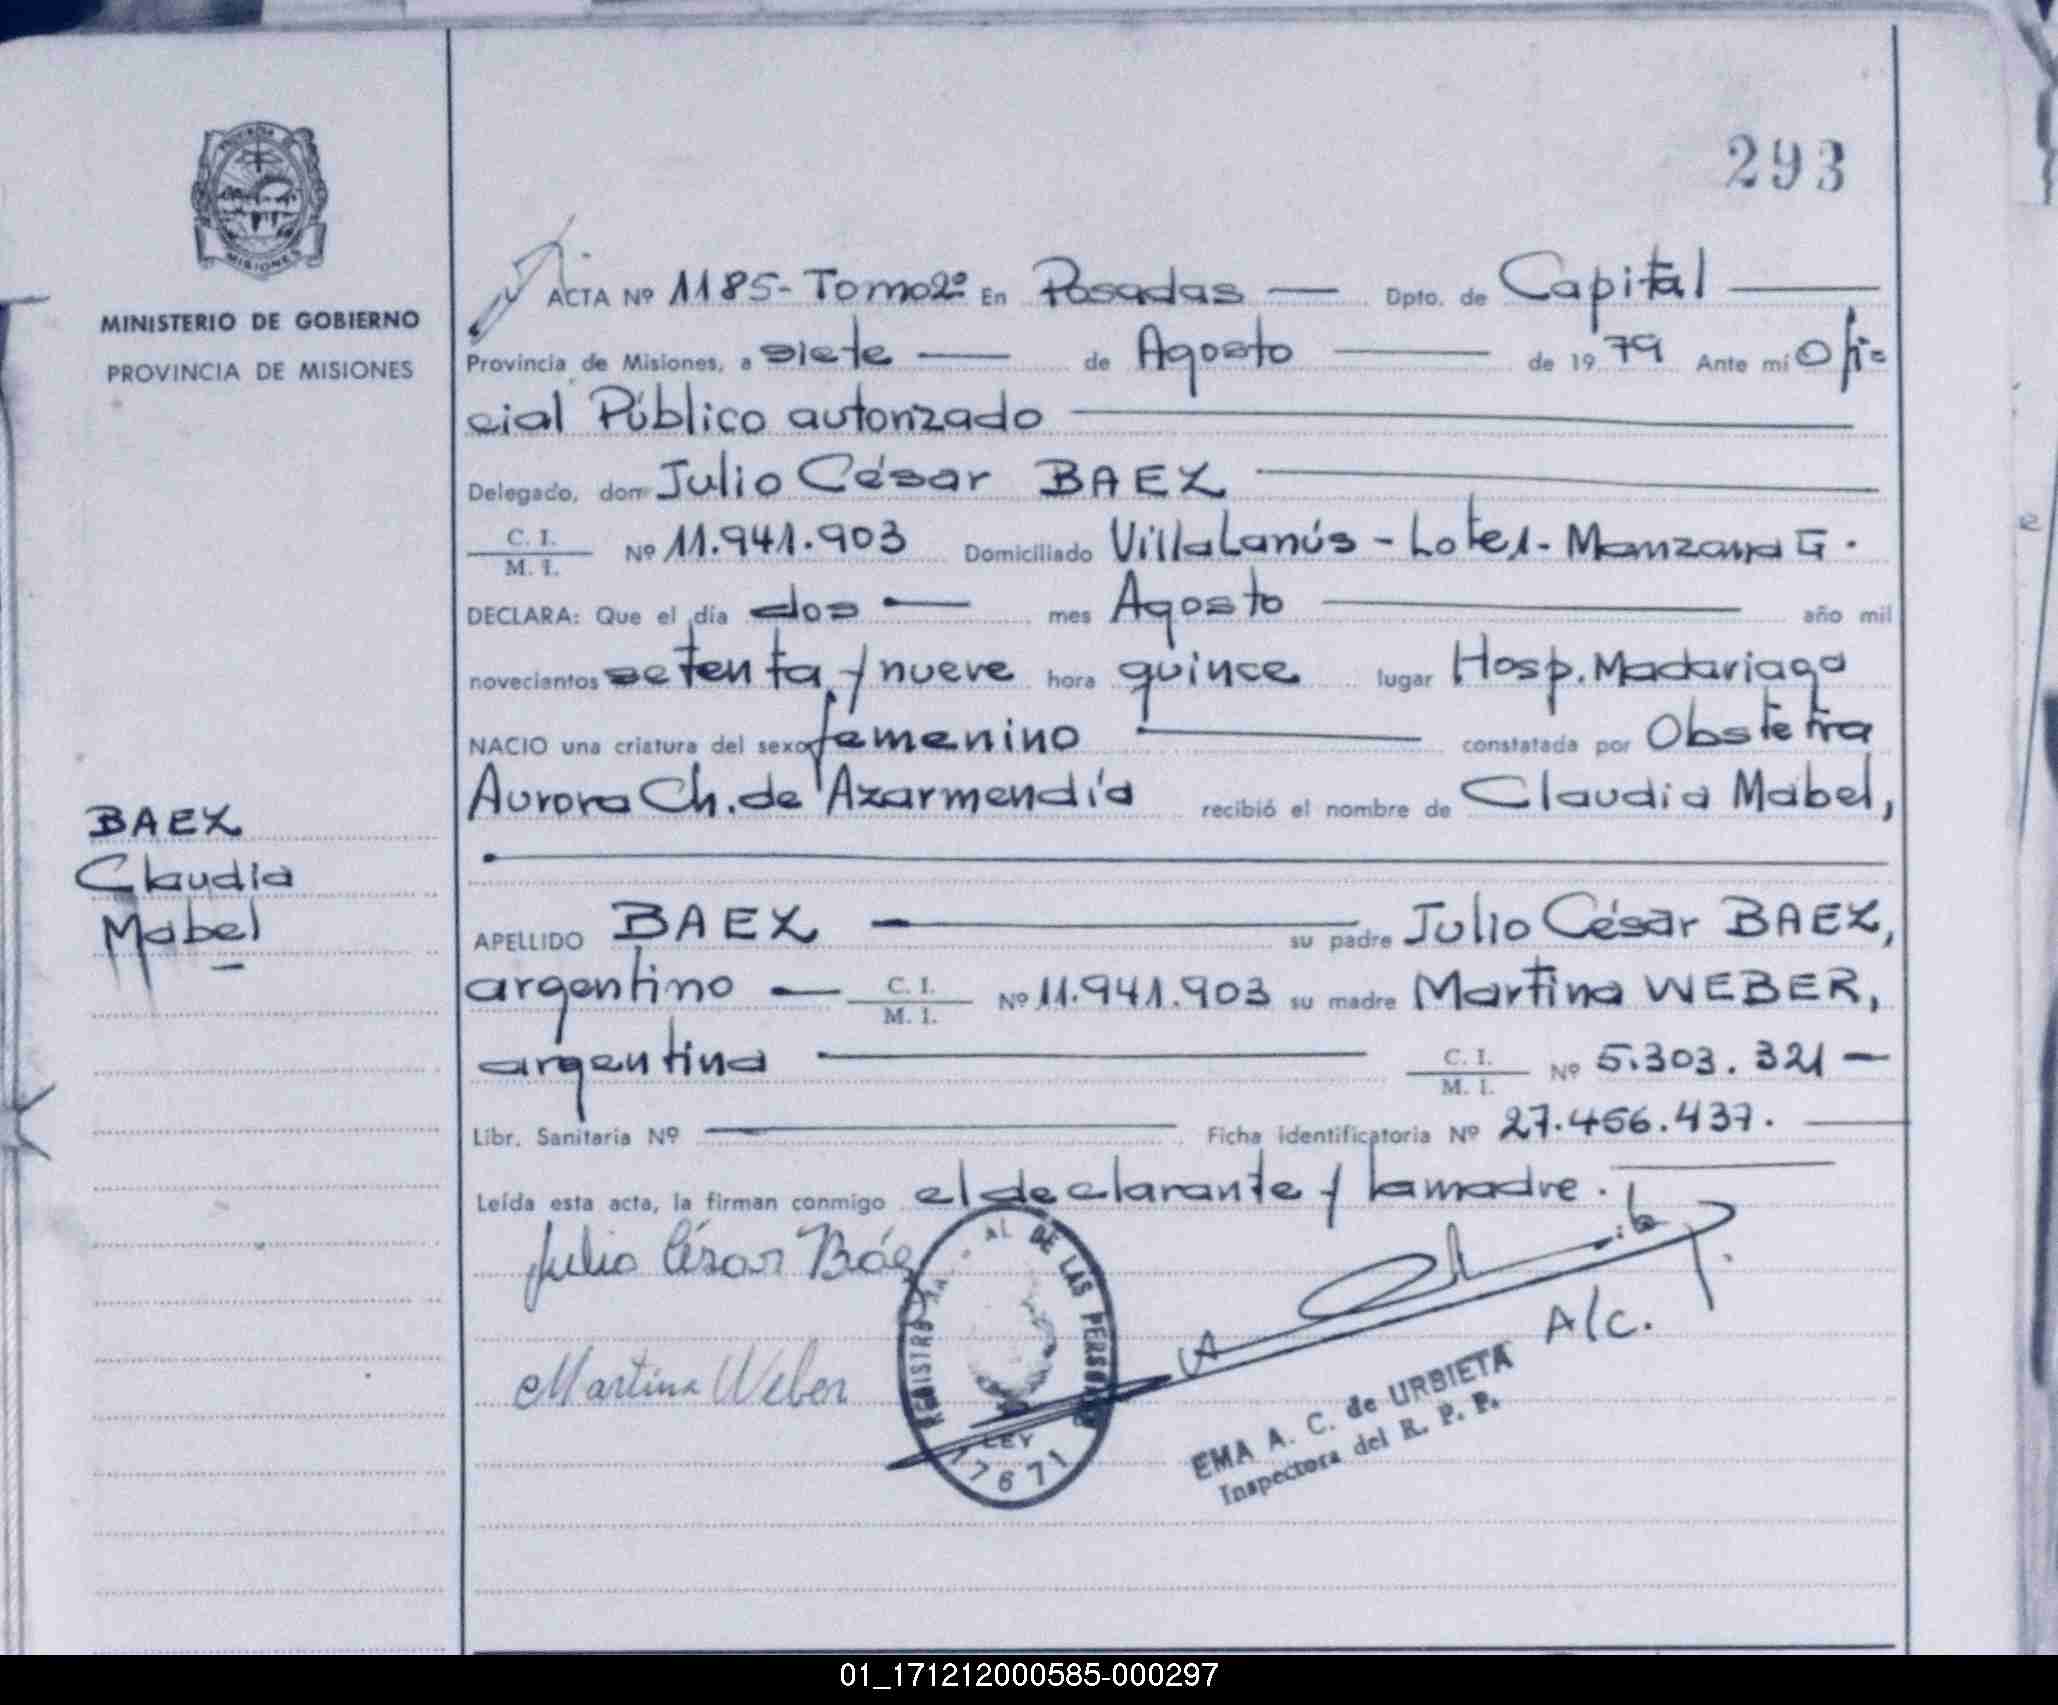 293
PROVINCIA
MISIONES
MINISTERIO DE GOBIERNO
PROVINCIA DE MISIONES
BAEZ
Claudia
Mabel
ACTA Nº 1185-Tomo2º En Posadas — Dpto. de Capital —
Provincia de Misiones, a siete — de Agosto — de 1979 Ante mí Ofi=
cial Público autorizado —
Delegado, don Julio César BAEZ —
C. I.
M. I. Nº 11.941.903 Domiciliado Villa Lanús - Lote 1. Manzana G.
DECLARA: Que el día dos — mes Agosto — año mil
novecientos setenta y nueve hora quince lugar Hosp. Madariaga
NACIO una criatura del sexo femenino — constatada por Obstetra
Aurora Ch. de Azarmendía recibió el nombre de Claudia Mabel,
APELLIDO BAEZ — su padre Julio César BAEZ,
argentino — C. I.
M. I. Nº 11.941.903 su madre Martina WEBER,
argentina — C. I.
M. I. Nº 5.303.321 —
Libr. Sanitaria Nº — Ficha identificatoria Nº 27.456.437. —
Leída esta acta, la firman conmigo el declarante y la madre. —
Julio César Báez
Martina Weber
DE LAS PERSONAS
LEY
17671
A/c.
EMA A. C. de URBIETA
Inspectora del R. P. P.
01_171212000585-000297